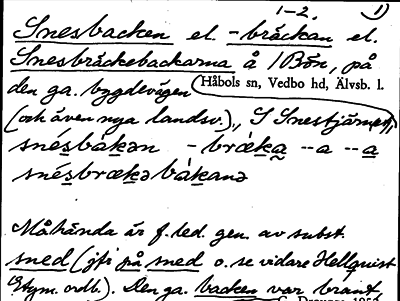 1-2. 1)
Snesbacken el. -bräckan el.
Snesbräckebackarna å /Bön, på
den ga. bygdevägen Håbols sn, Vedbo hd, Älvsb. l.
(och även nya landsv.), S Snestjärnet,
snésbakən -brǽka --a --a
snésbrækəbákanə
Måhända är f. led. gen. av subst.
sned (jfr på sned o. se vidare Hellquist
Etym. ordb.). Den ga. backen var brant